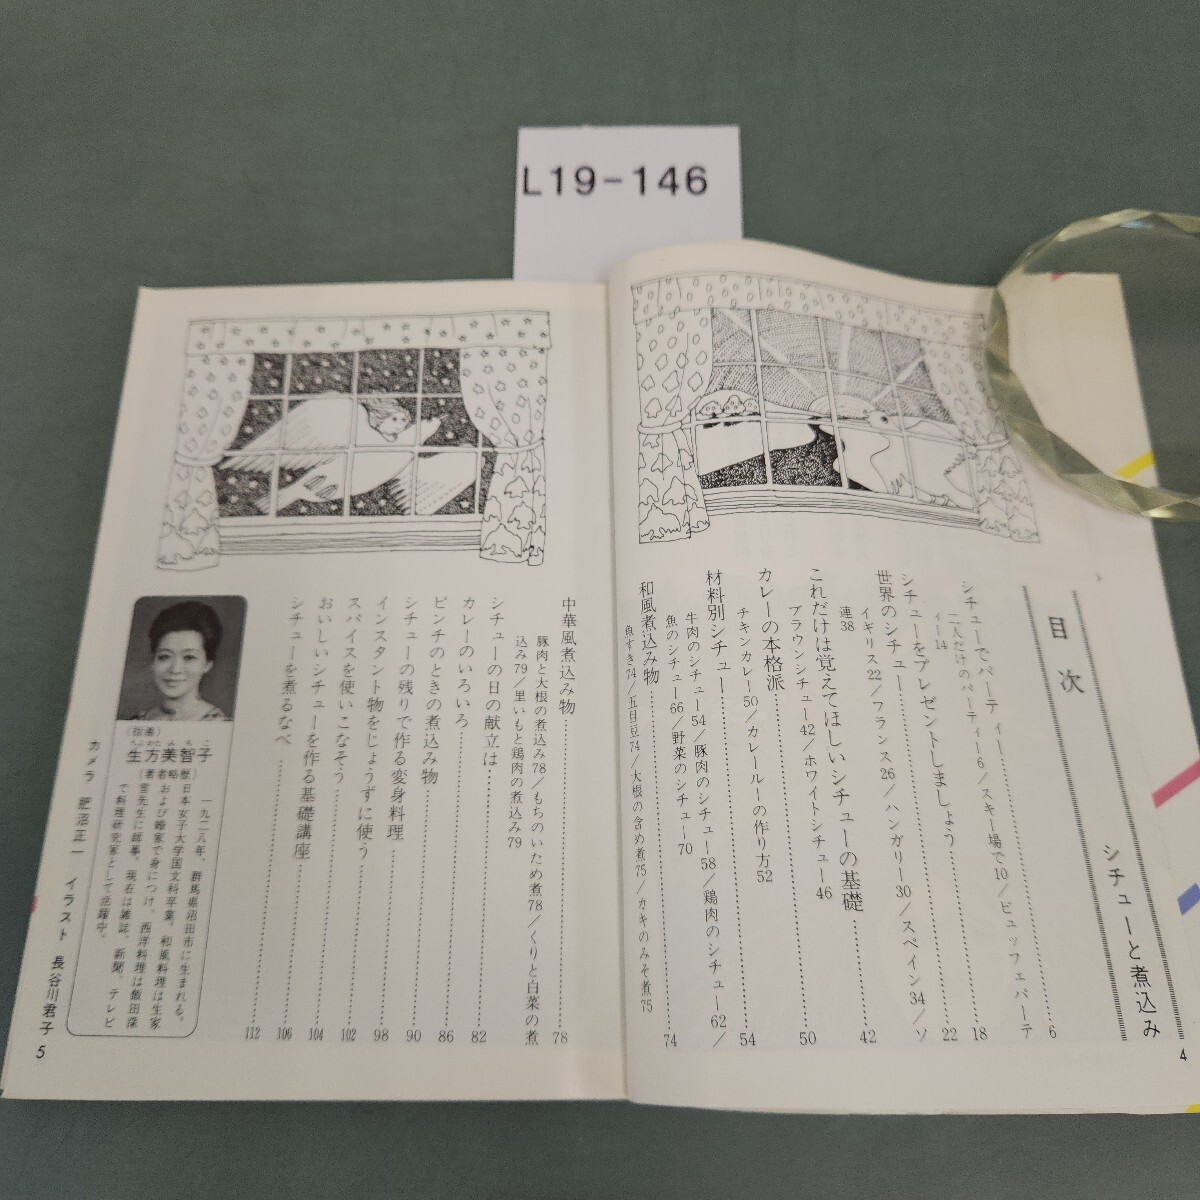 L19-146
目次
シチューと煮込み
シチューでパーティー……6
二人だけのパーティー6/スキー場で10/ビュッフェパーテ
ィー14
シチューをプレゼントしましょう……18
世界のシチュー……22
イギリス22/フランス26/ハンガリー30/スペイン34/ソ
連38
これだけは覚えてほしいシチューの基礎……42
ブラウンシチュー42/ホワイトシチュー46
カレーの本格派……50
チキンカレー50/カレールーの作り方52
材料別シチュー……54
牛肉のシチュー54/豚肉のシチュー58/鶏肉のシチュー62/
魚のシチュー66/野菜のシチュー70
和風煮込み物……74
魚すき74/五目豆74/大根の含め煮75/カキのみそ煮75
4
中華風煮込み物……78
豚肉と大根の煮込み78/もちのいため煮78/くりと白菜の煮
込み79/里いもと鶏肉の煮込み79
シチューの日の献立は……82
カレーのいろいろ……86
ピンチのときの煮込み物……90
シチューの残りで作る変身料理……98
インスタント物をじょうずに使う……102
スパイスを使いこなそう……104
おいしいシチューを作る基礎講座……106
シチューを煮るなべ……112
(指導)
生方美智子
うぶかたみちこ
(著者略歴)
一九二八年、群馬県沼田市に生まれる。
日本女子大学国文科卒業。和風料理は生家
および婚家で身につけ、西洋料理は飯田深
雪先生に師事。現在は雑誌、新聞、テレビ
で料理研究家として活躍中。
カメラ 肥沼正一 イラスト 長谷川君子
5